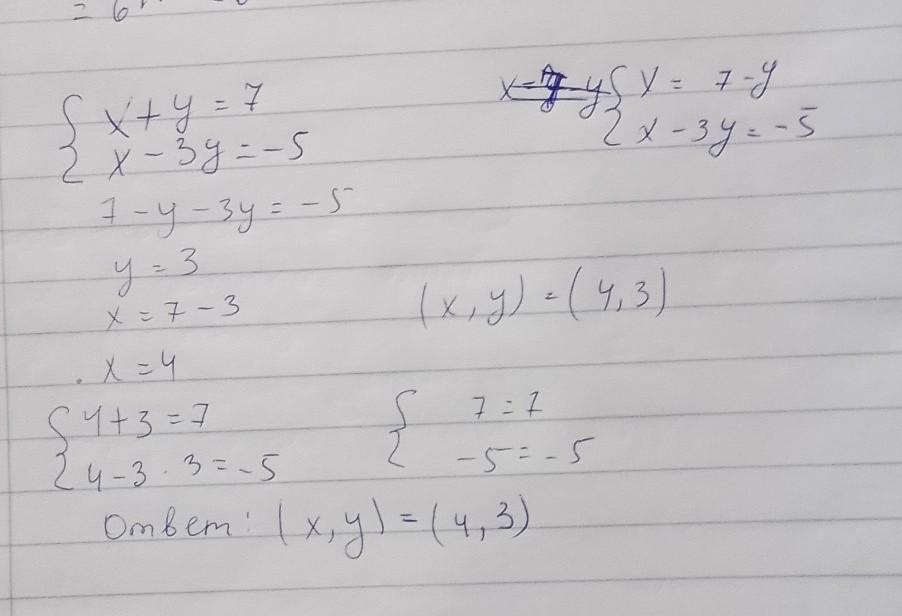 = 6
{ x + y = 7
x - 3y = -5
{ y = 7 - y
x - 3y = -5
7 - y - 3y = -5
y = 3
x = 7 - 3
(x, y) = (4, 3)
. x = 4
{ 4 + 3 = 7
4 - 3 · 3 = -5
{ 7 = 7
-5 = -5
Ответ: (x, y) = (4, 3)